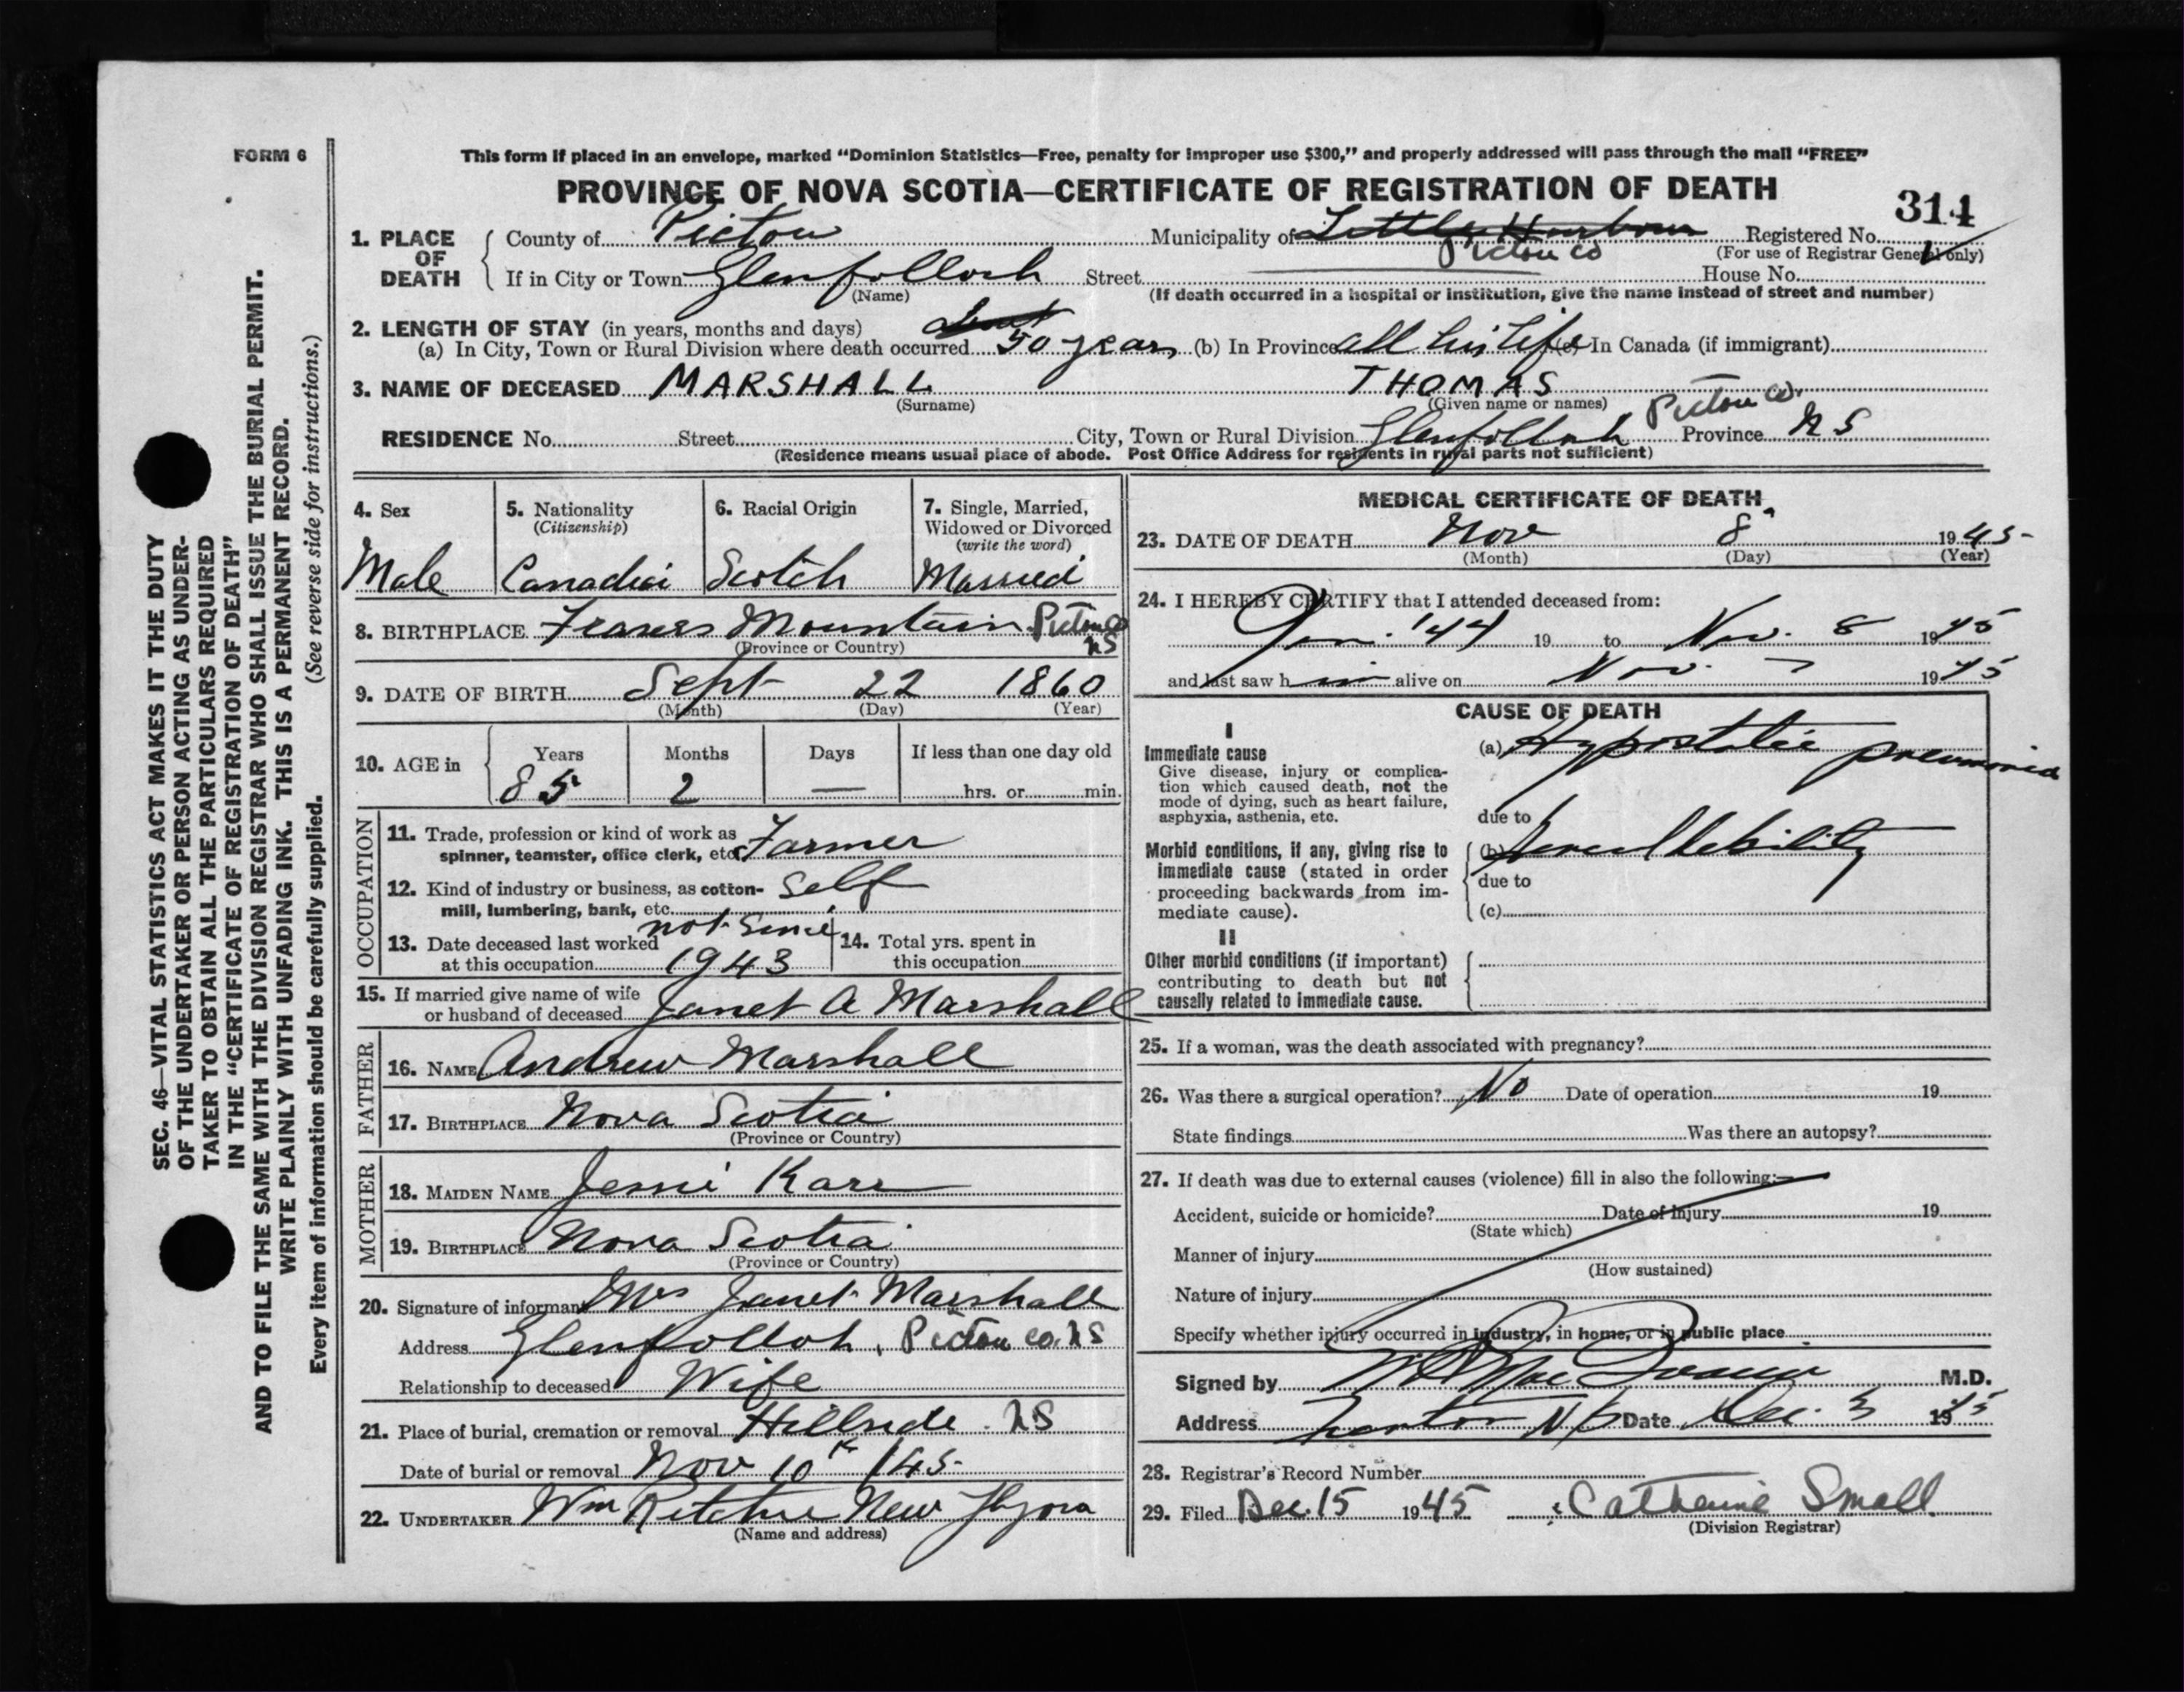 FORM 6
This form if placed in an envelope, marked “Dominion Statistics—Free, penalty for improper use $300,” and properly addressed will pass through the mail “FREE”
PROVINCE OF NOVA SCOTIA—CERTIFICATE OF REGISTRATION OF DEATH
314
1. PLACE OF DEATH
County of Pictou
Municipality of Little Harbour Pictou Co
Registered No.
(For use of Registrar General only)
If in City or Town Glenfolloch Street House No.
(Name)
(If death occurred in a hospital or institution, give the name instead of street and number)
2. LENGTH OF STAY (in years, months and days)
(a) In City, Town or Rural Division where death occurred about 50 years (b) In Province all his life (c) In Canada (if immigrant)
3. NAME OF DECEASED MARSHALL THOMAS
(Surname) (Given name or names)
RESIDENCE No. Street City, Town or Rural Division Glenfolloch Pictou Co. Province N S
(Residence means usual place of abode. Post Office Address for residents in rural parts not sufficient)
4. Sex
Male
5. Nationality
(Citizenship)
6. Racial Origin
Scotch
7. Single, Married,
Widowed or Divorced
(write the word)
Married
8. BIRTHPLACE Frasers Mountain Pictou Co NS
(Province or Country)
9. DATE OF BIRTH Sept 22 1860
(Month) (Day) (Year)
10. AGE in
Years Months Days If less than one day old
85 2 — hrs. or min.
OCCUPATION
11. Trade, profession or kind of work as
spinner, teamster, office clerk, etc. Farmer
12. Kind of industry or business, as cotton-
mill, lumbering, bank, etc. Self
13. Date deceased last worked
at this occupation not since 1943
14. Total yrs. spent in
this occupation
15. If married give name of wife
or husband of deceased Janet A Marshall
FATHER
16. NAME Andrew Marshall
17. BIRTHPLACE Nova Scotia
(Province or Country)
MOTHER
18. MAIDEN NAME Jessie Karr
19. BIRTHPLACE Nova Scotia
(Province or Country)
20. Signature of informant Mrs Janet Marshall
Address Glenfolloh, Pictou Co. NS
Relationship to deceased Wife
21. Place of burial, cremation or removal Hillside . NS
Date of burial or removal Nov 10th /45
22. UNDERTAKER Wm Ritchie New
(Name and address)
MEDICAL CERTIFICATE OF DEATH
23. DATE OF DEATH Nov 8 1945
(Month) (Day) (Year)
24. I HEREBY CERTIFY that I attended deceased from:
'44 19 to Nov. 8 1945
and last saw him alive on Nov. 7 1945
CAUSE OF DEATH
I
Immediate cause
Give disease, injury or complica-
tion which caused death, not the
mode of dying, such as heart failure,
asphyxia, asthenia, etc.
(a) Hypostatic pneumonia
due to
Morbid conditions, if any, giving rise to
immediate cause (stated in order
proceeding backwards from im-
mediate cause).
(b) debility
due to
(c)
II
Other morbid conditions (if important)
contributing to death but not
causally related to immediate cause.
25. If a woman, was the death associated with pregnancy?
26. Was there a surgical operation? No Date of operation 19
State findings Was there an autopsy?
27. If death was due to external causes (violence) fill in also the following:—
Accident, suicide or homicide? Date of injury 19
(State which)
Manner of injury
(How sustained)
Nature of injury
Specify whether injury occurred in industry, in home, or in public place
Signed by M.D.
Address Date Dec. 3 1945
28. Registrar's Record Number
29. Filed Dec. 15 1945 Catherine Small
(Division Registrar)
SEC. 46—VITAL STATISTICS ACT MAKES IT THE DUTY
OF THE UNDERTAKER OR PERSON ACTING AS UNDER-
TAKER TO OBTAIN ALL THE PARTICULARS REQUIRED
IN THE “CERTIFICATE OF REGISTRATION OF DEATH”
AND TO FILE THE SAME WITH THE DIVISION REGISTRAR WHO SHALL ISSUE THE BURIAL PERMIT.
WRITE PLAINLY WITH UNFADING INK. THIS IS A PERMANENT RECORD.
Every item of information should be carefully supplied. (See reverse side for instructions.)